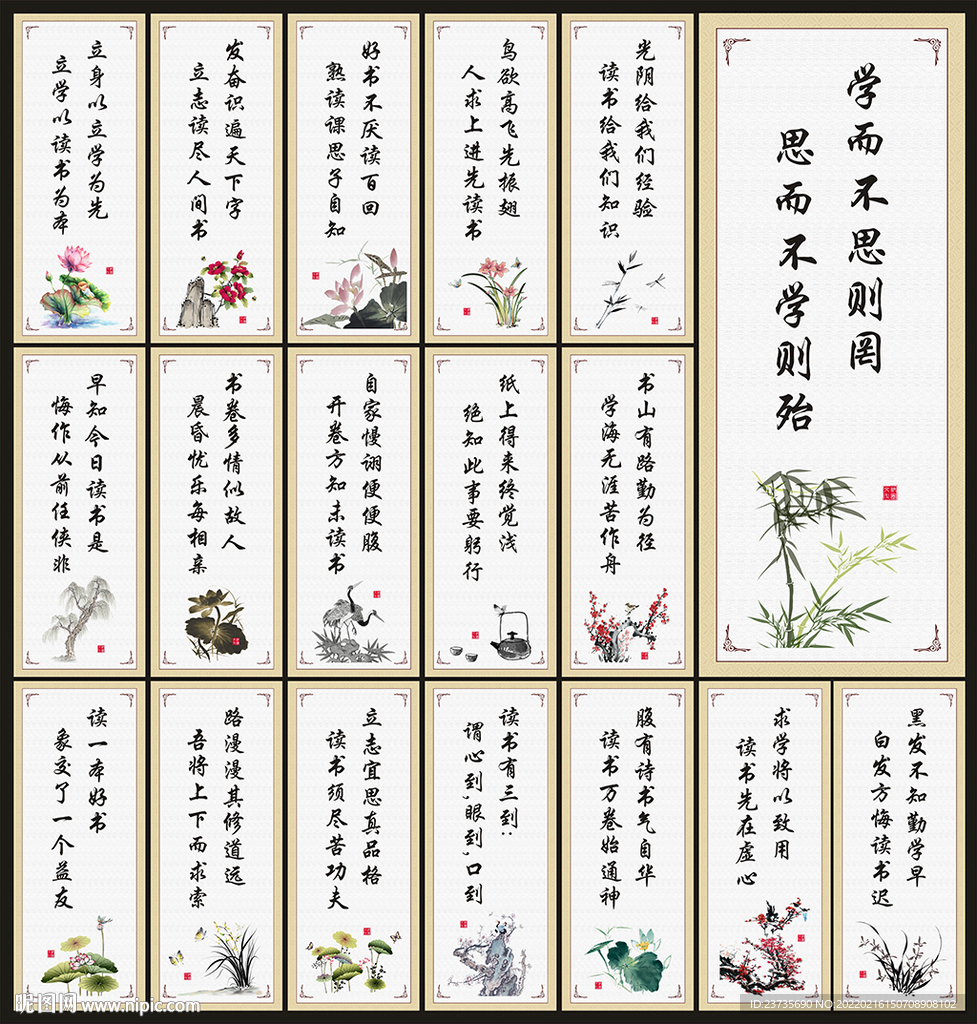 立身以立学为先
立学以读书为本
发奋识遍天下字
立志读尽人间书
好书不厌读百回
熟读课思子自知
鸟欲高飞先振翅
人求上进先读书
光阴给我们经验
读书给我们知识
学而不思则罔
思而不学则殆
早知今日读书是
悔作从前任侠非
书卷多情似故人
晨昏忧乐每相亲
自家慢诩便便腹
开卷方知未读书
纸上得来终觉浅
绝知此事要躬行
书山有路勤为径
学海无涯苦作舟
读一本好书
象交了一个益友
路漫漫其修道远
吾将上下而求索
立志宜思真品格
读书须尽苦功夫
读书有三到:
谓心到,眼到,口到
腹有诗书气自华
读书万卷始通神
求学将以致用
读书先在虚心
黑发不知勤学早
白发方悔读书迟
昵图网 www.nipic.com
ID:23735690 NO:20220216150708908102